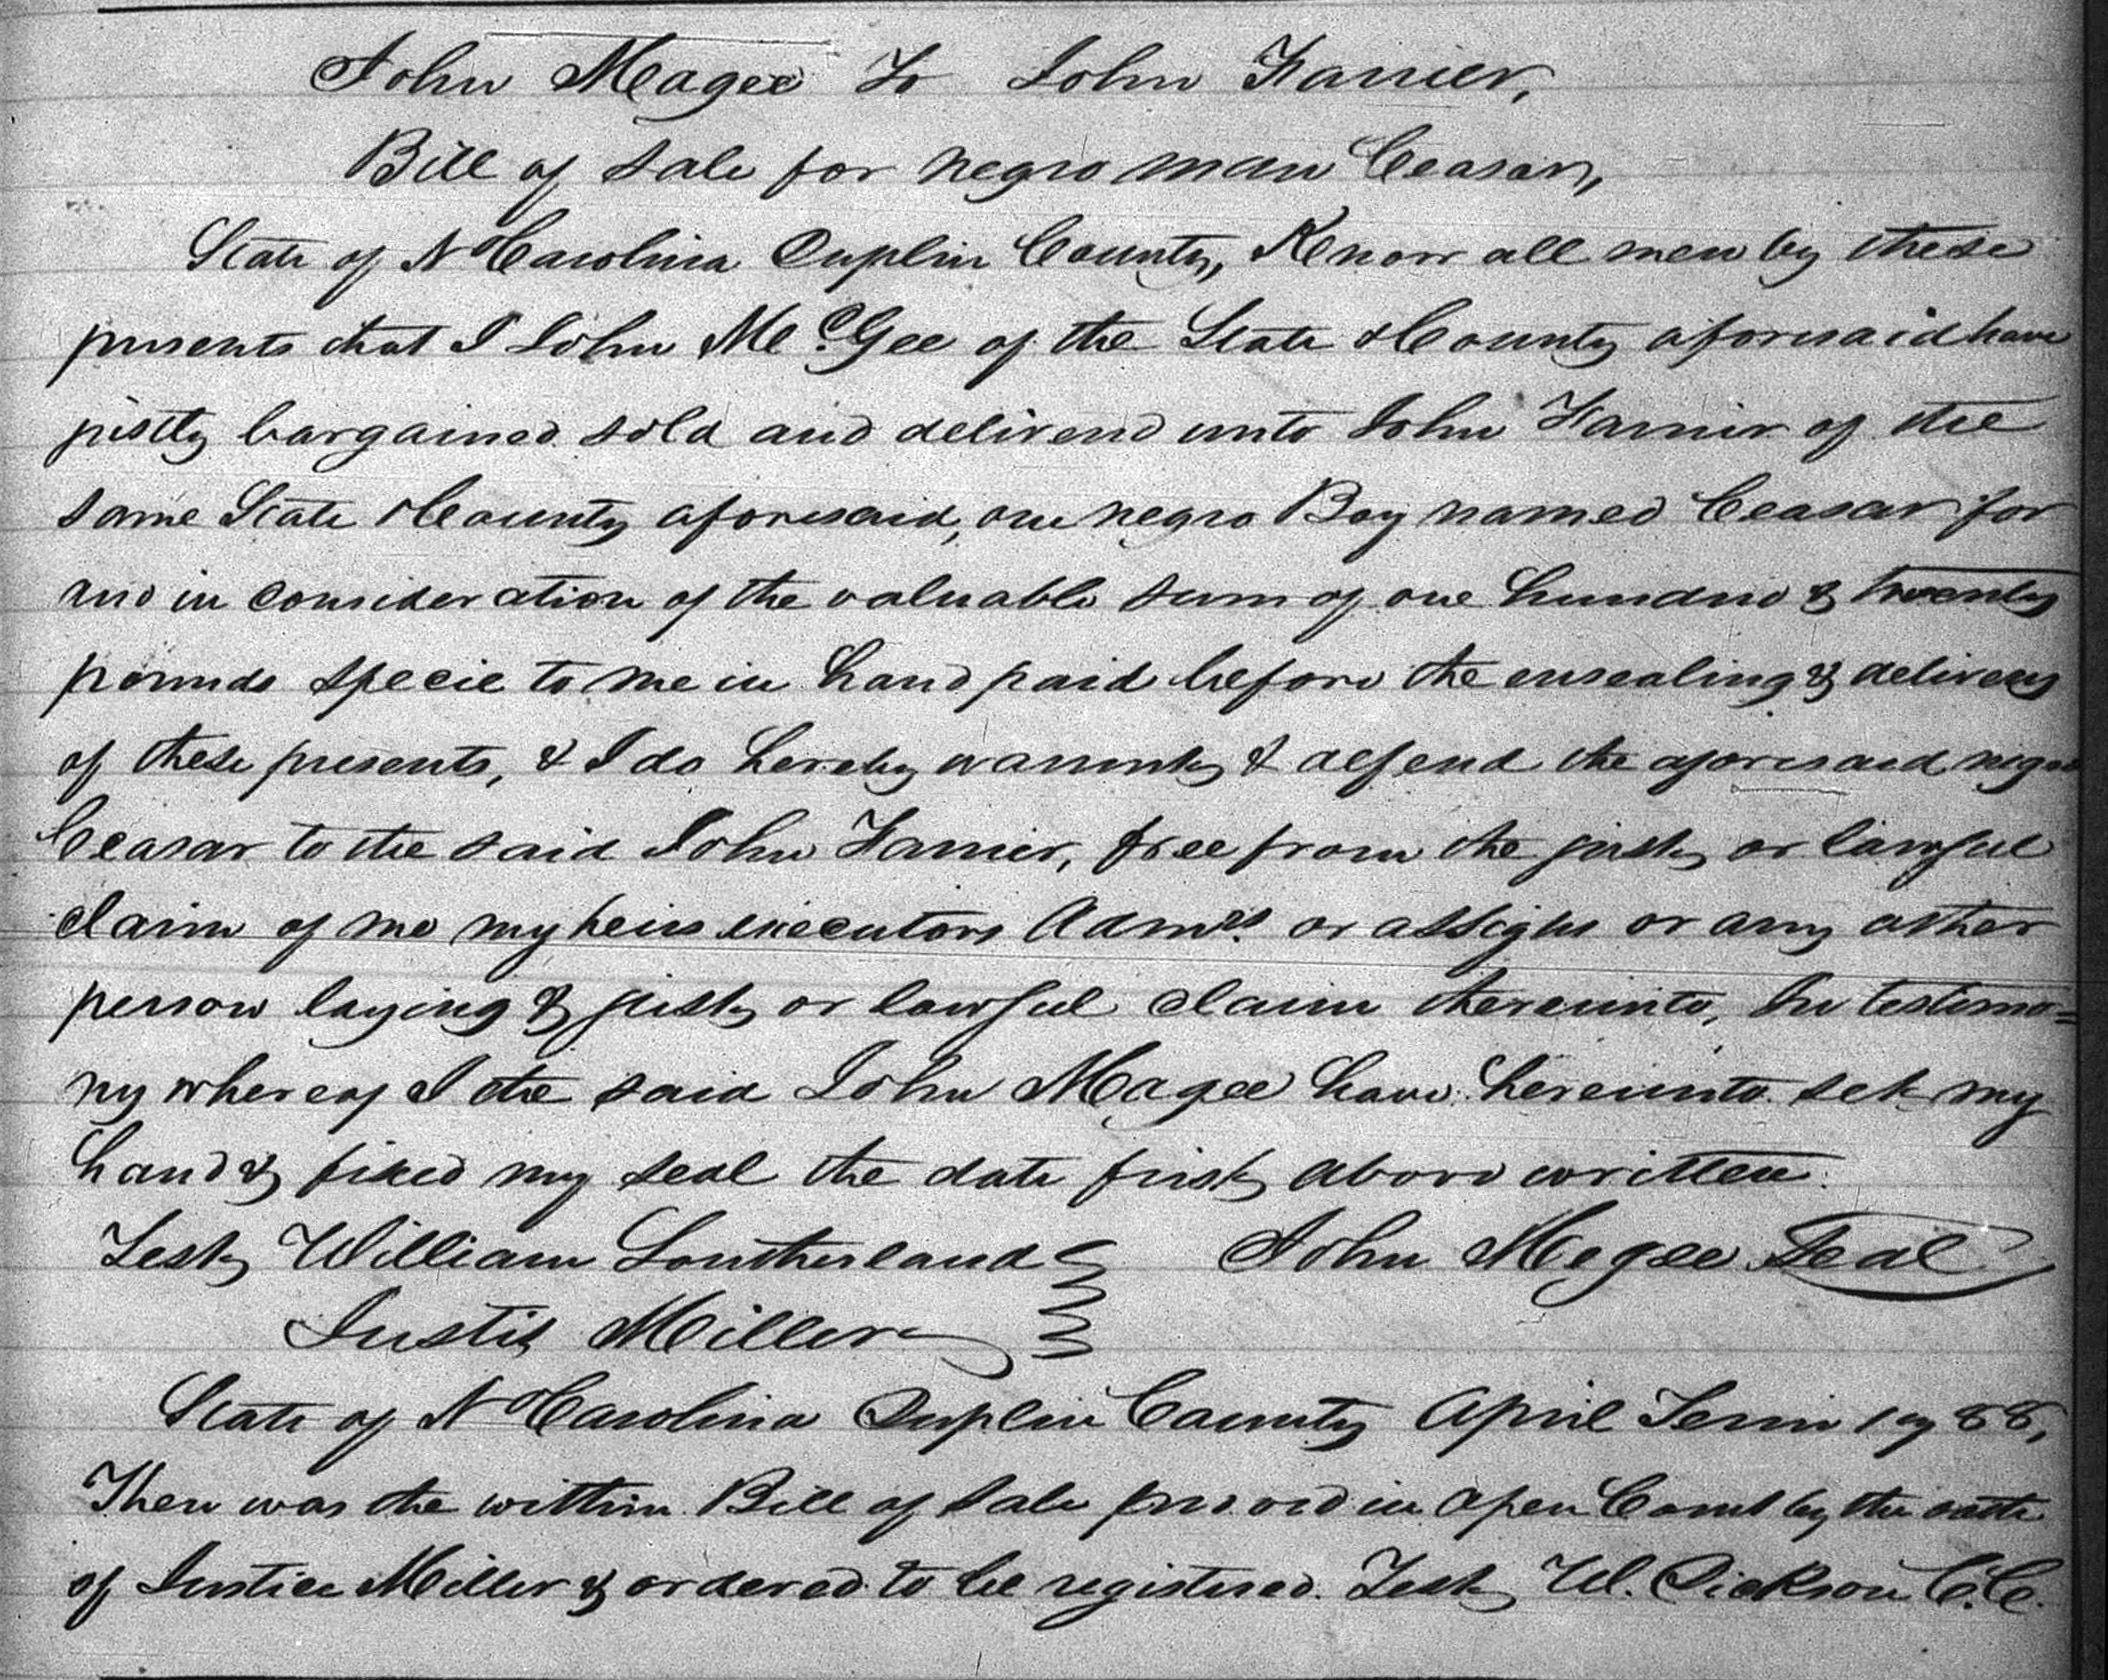 John Magee To John Farrier,
Bill of Sale for negro man Ceasar,
State of N Carolina Duplin County, Know all men by these
presents that I John McGee of the State & County aforesaid have
justly bargained sold and delivered unto John Farrier of the
same State & County aforesaid, one negro Boy named Ceasar for
and in consideration of the valuable sum of one hundred & twenty
pounds specie to me in hand paid before the ensealing & delivery
of these presents, & I do hereby warrant & defend the aforesaid negro
Ceasar to the said John Farrier, free from the just or lawful
claim of me my heirs executors Admrs. or assigns or any other
person laying & just or lawful claim thereunto, In testimo=
ny whereof I the said John Magee have hereunto set my
hand & fixed my seal the date first above written.
Test William Southerland John Megee Seal
Justis Miller
State of N Carolina Duplin County April Term 1788,
Then was the within Bill of Sale proved in open Court by the oath
of Justice Miller & ordered to be registered. Test W. Dickson C.C.